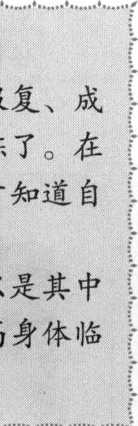 复、成
了。在
知道自
是其中
身体临